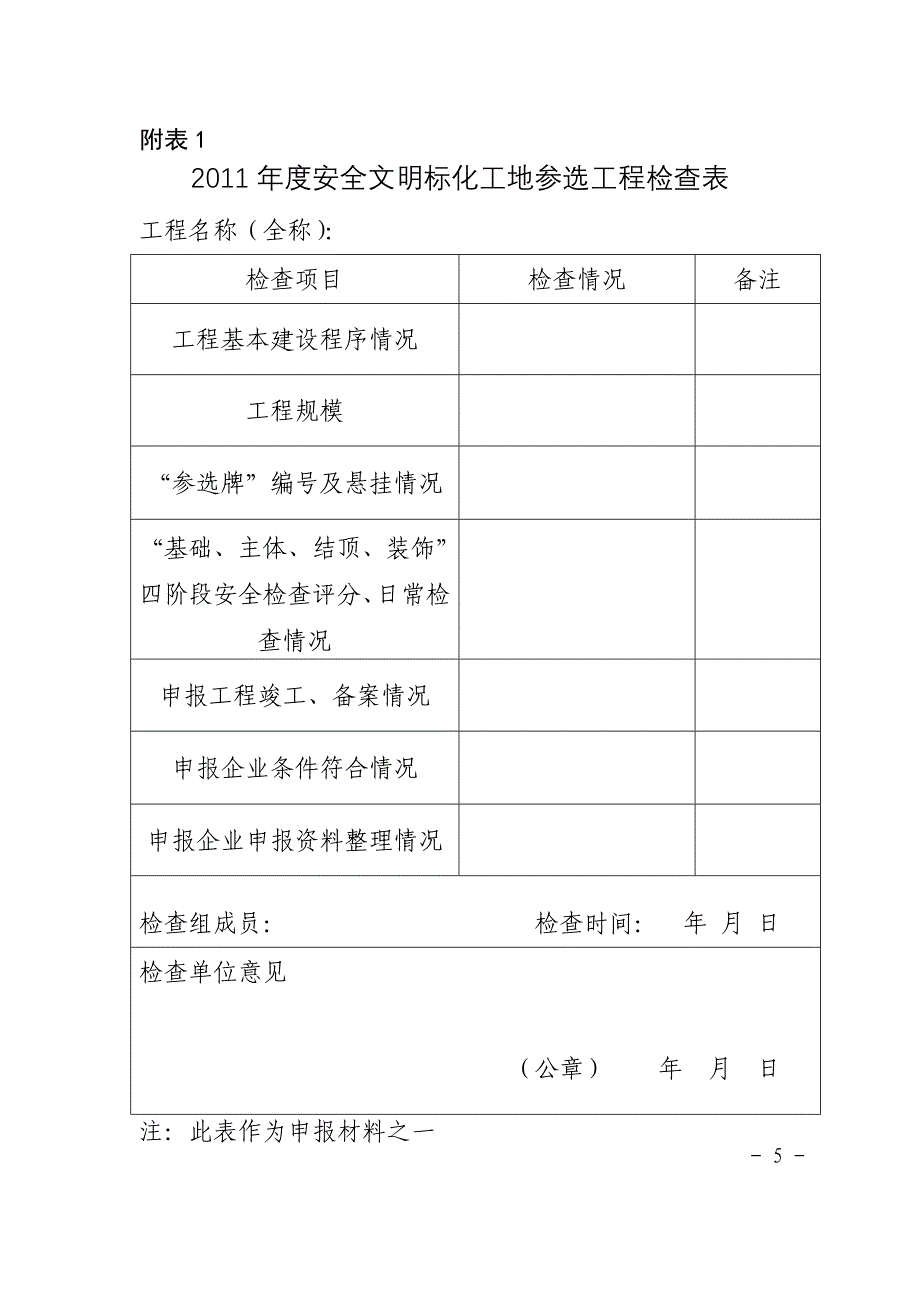 附表1
2011年度安全文明标化工地参选工程检查表
工程名称（全称）：
检查项目 检查情况 备注
工程基本建设程序情况
工程规模
“参选牌”编号及悬挂情况
“基础、主体、结顶、装饰”
四阶段安全检查评分、日常检
查情况
申报工程竣工、备案情况
申报企业条件符合情况
申报企业申报资料整理情况
检查组成员： 检查时间： 年 月 日
检查单位意见
（公章） 年 月 日
注：此表作为申报材料之一
－ 5 －